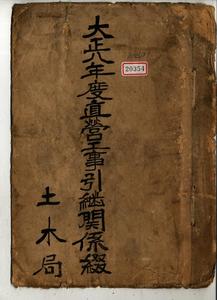 大正八年度直営工事引継関係綴
土木局
20354